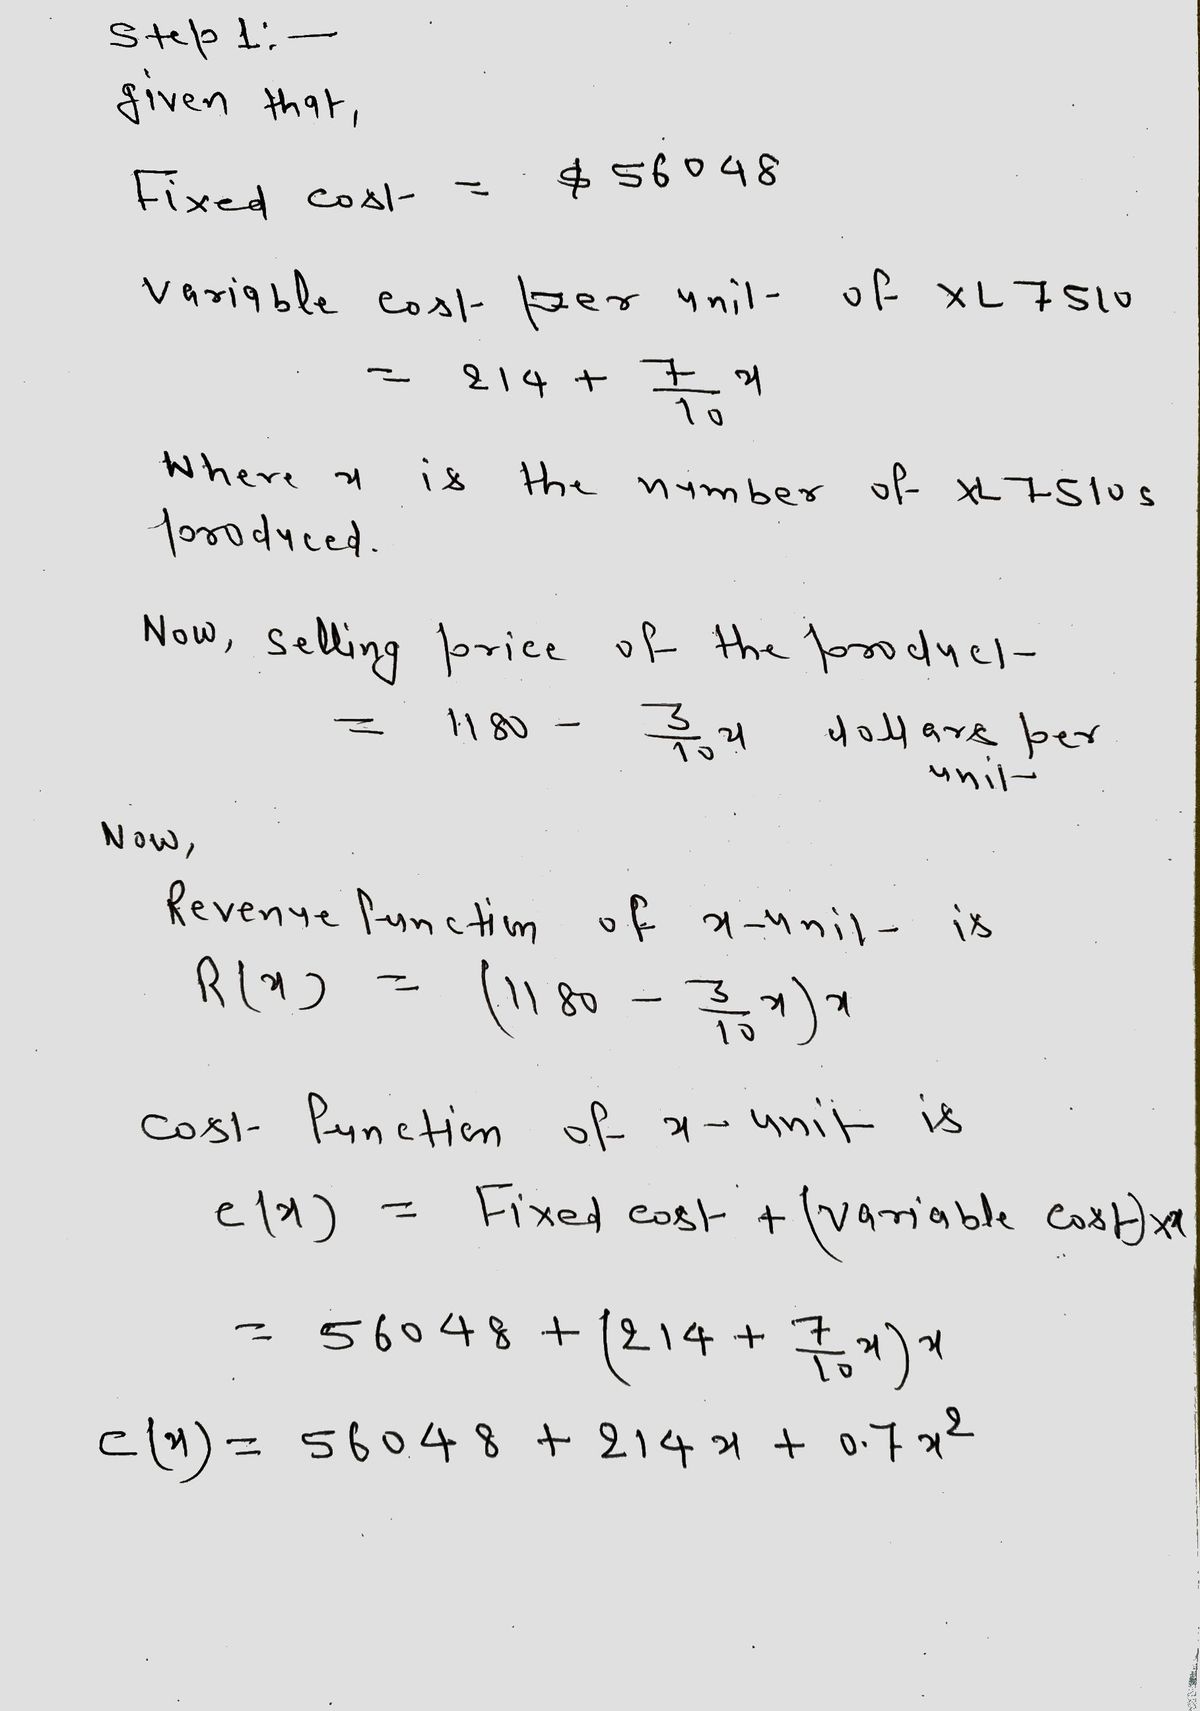 Step 1:—
given that,
Fixed cost = $ 56048
variable cost per unit of XL7510
= 214 + 7/10 x
Where x is the number of XL7510s
produced.
Now, selling price of the product
= 1180 - 3/10 x dollars per
unit
Now,
Revenue function of x-unit is
R(x) = (1180 - 3/10 x) x
cost function of x-unit is
c(x) = Fixed cost + (variable cost) × x
= 56048 + (214 + 7/10 x) x
c(x) = 56048 + 214x + 0.7x²